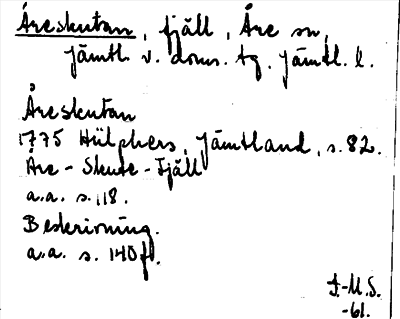 Åreskutan, fjäll, Åre sn,
Jämtl. v. doms. tg. Jämtl. l.
Åreskutan
1775 Hülphers, Jämtland, s. 82.
Åre-Skute-Fjäll
a.a. s. 118.
Beskrivning.
a.a. s. 140 f.
I-M.S.
-61.